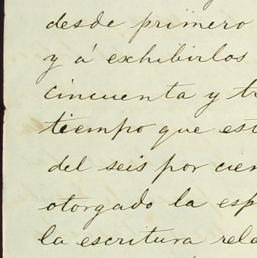 desde primero
y á exhibirlos
cincuenta y
tiempo que
del seis por
otorgado la
la escritura